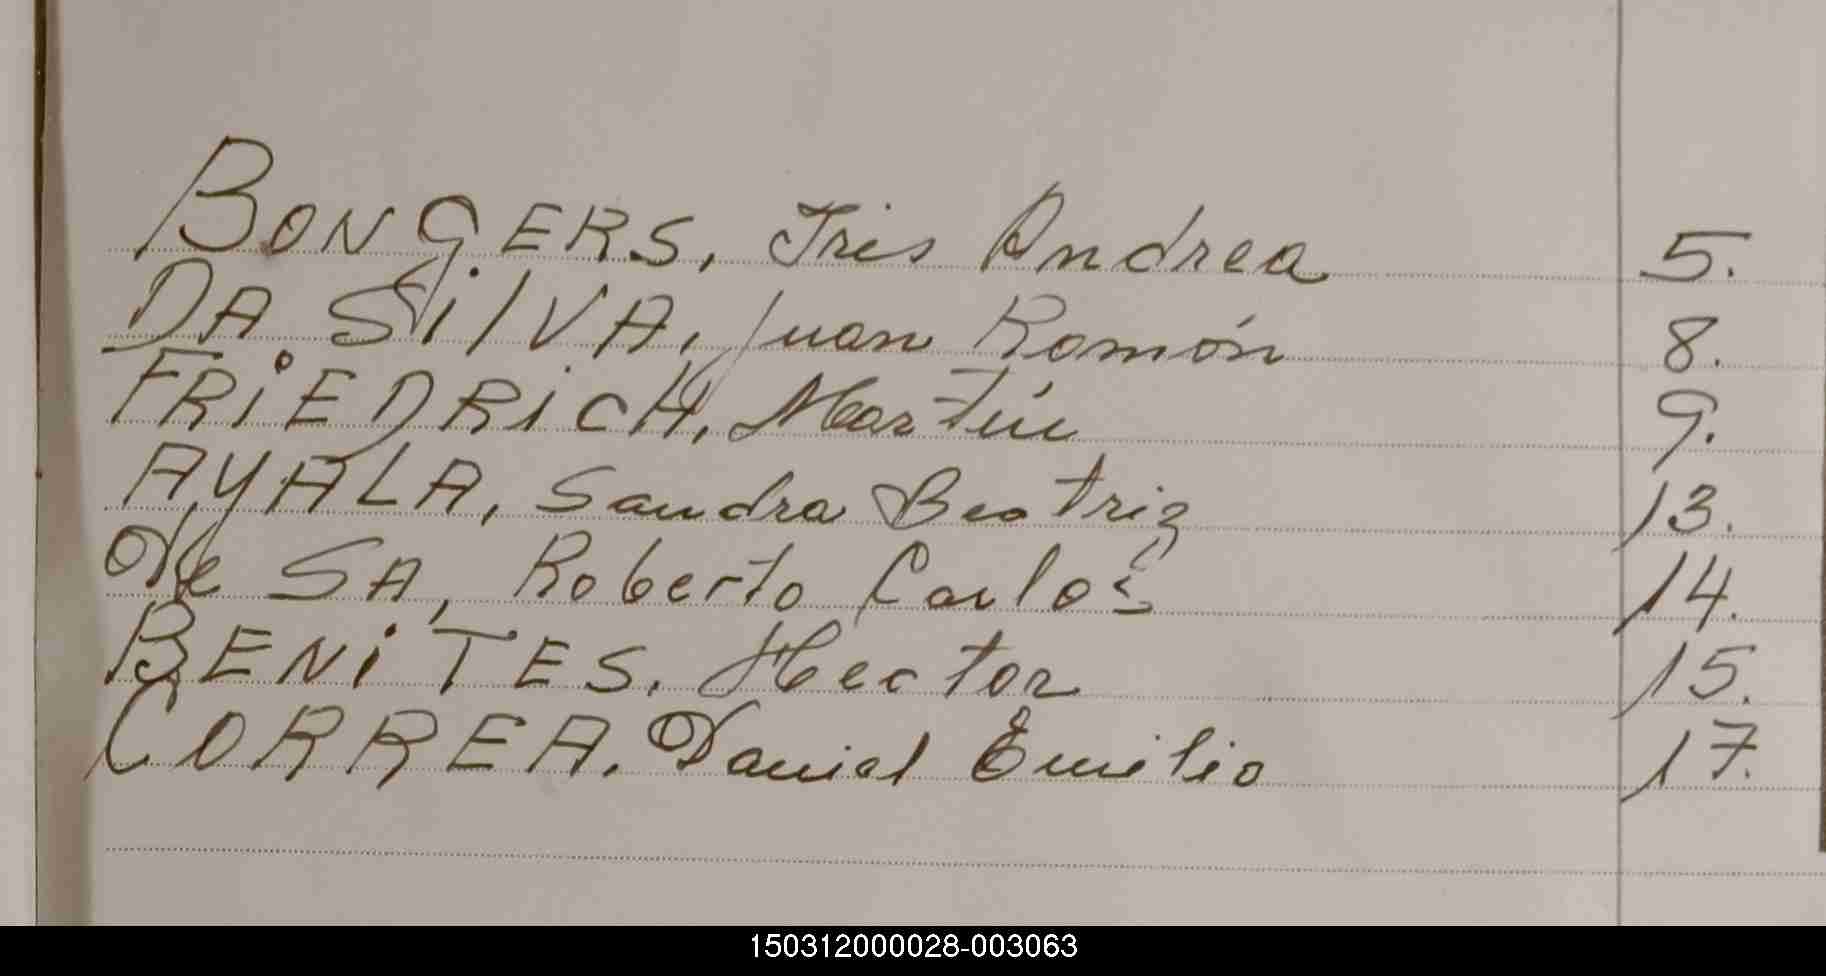 BONGERS, Iris Andrea 5.
DA SilVA, Juan Ramón 8.
FRiEDRiCH, Martín 9.
AYALA, Sandra Beatriz 13.
De SA, Roberto Carlos 14.
BENiTES. Hector 15.
CORREA. Daniel Emilio 17.
150312000028-003063